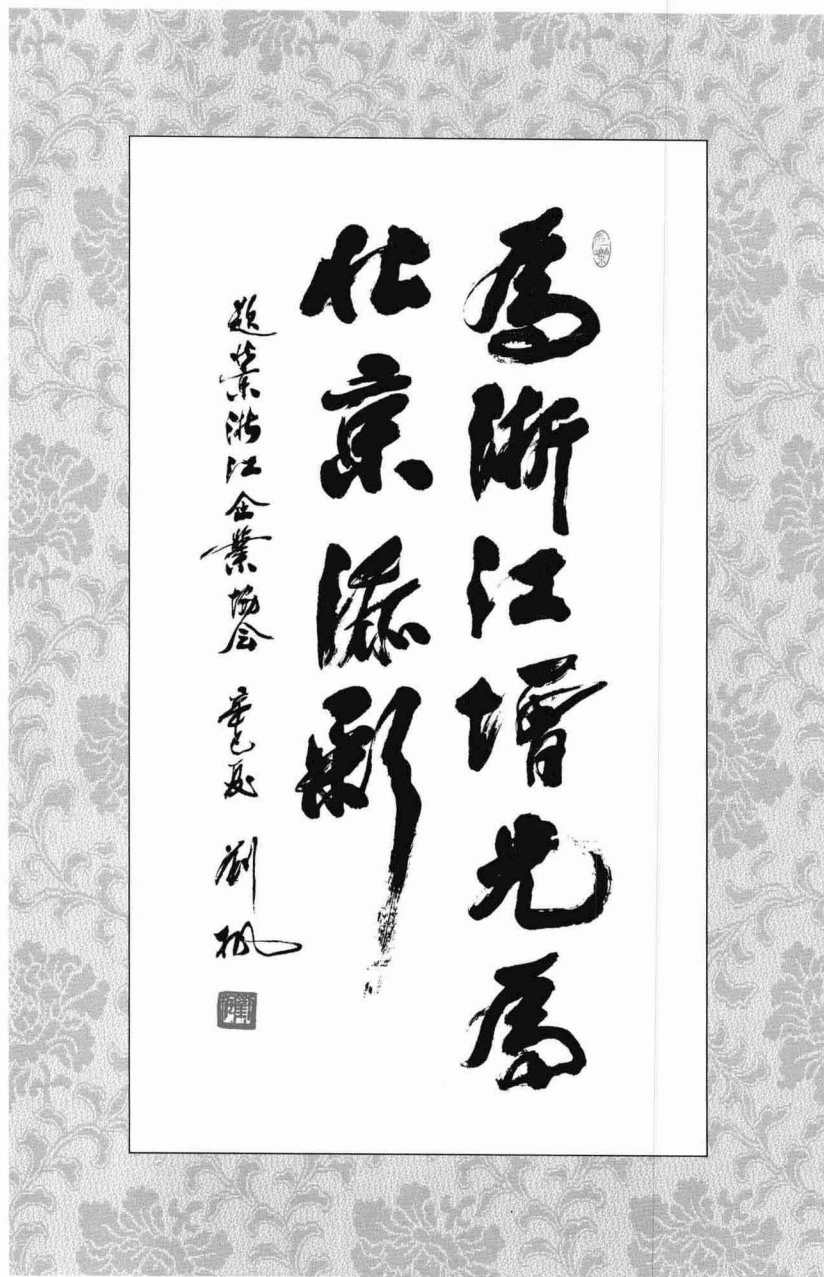 為浙江增光為
北京添彩
題北京浙江企業協会 辛巳夏 劉枫